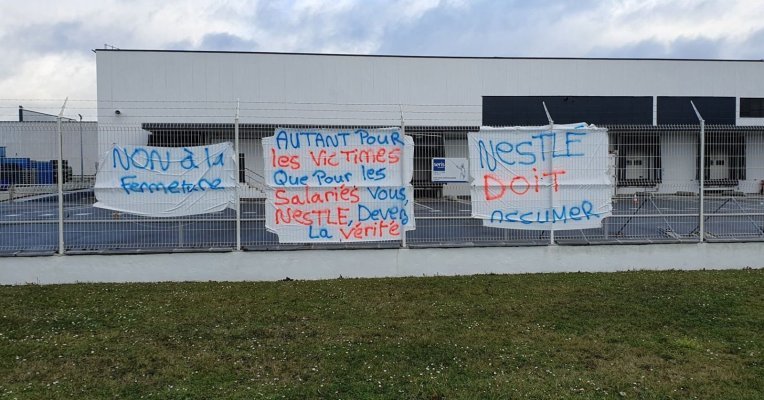 NON à la
fermeture
AUTANT POUR
les VICTIMES
Que Pour les
Salariés VOUS,
NESTLÉ, Devez
La Vérité
NESTLE
DOIT
ASSUMER
seris